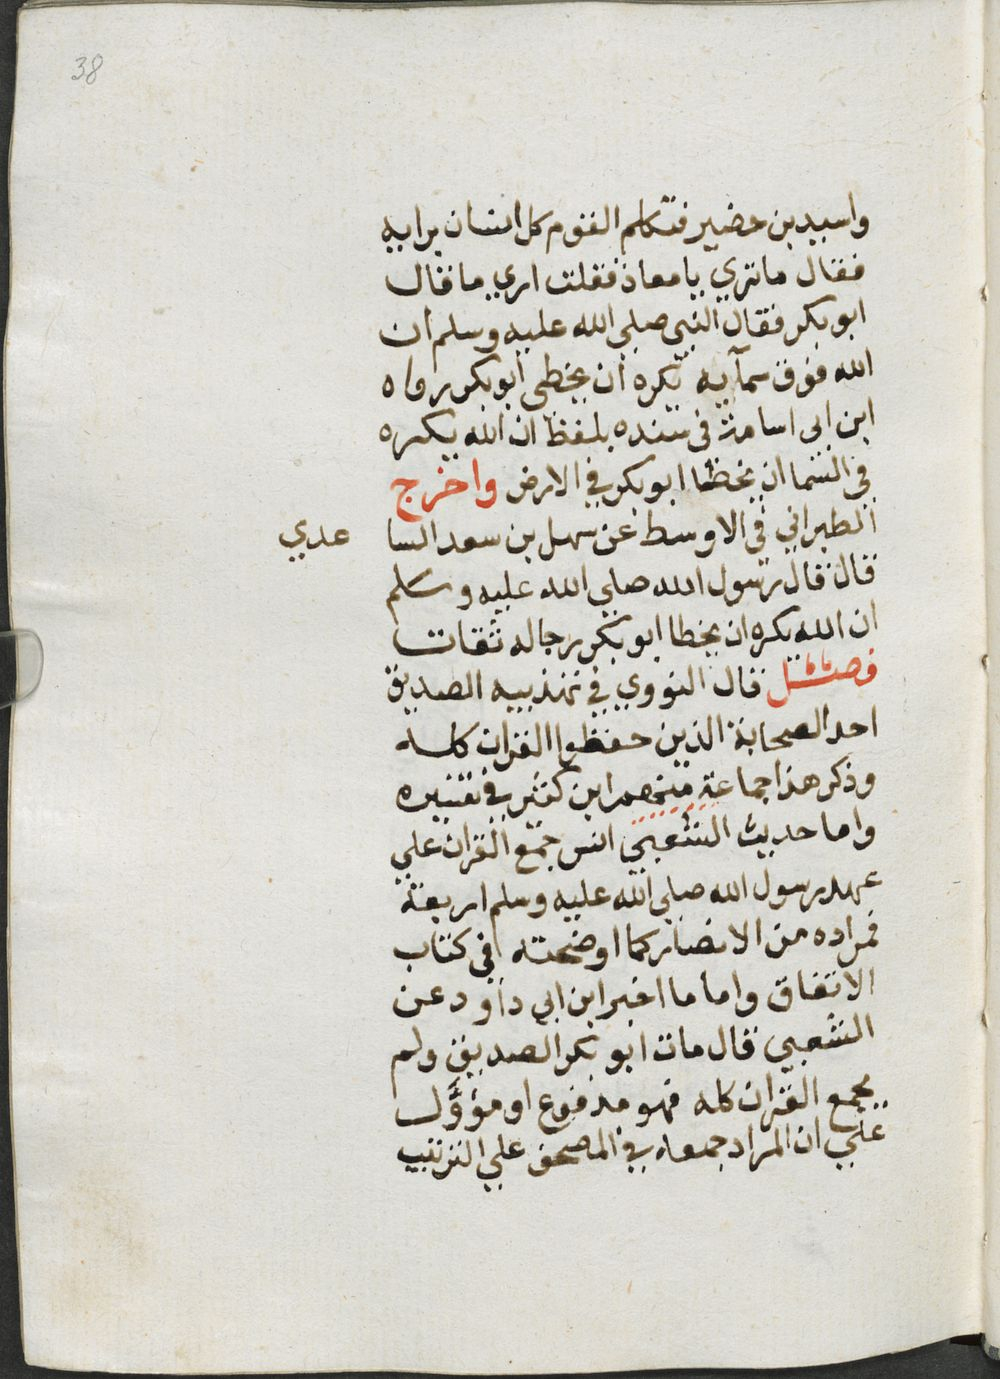 38
واسيد بن حضير فتكلم القوم كل انسان برايه
فقال ما تري يا معاذ فقلت اري ما قال
ابو بكر فقال النبي صلى الله عليه وسلم ان
الله فوق سمآيه تكره ان يخطى ابو بكر رواه
ابن ابى اسامة فى سنده بلفظ ان الله يكره
في السما ان يخطا ابو بكر في الارض واخرج
الطبراني في الاوسط عن سهل بن سعد السا عدي
قال قال رسول الله صلى الله عليه وسلم
ان الله يكره ان يخطا ابو بكر رجاله ثقات
فصل قال النووي في تهذيبه الصديق
احد الصحابة الذين حفظوا القران كله
وذكر هذا جماعة منهم ابن كثير في تفسيره
واما حديث الشعبي انس جمع القران علي
عهد رسول الله صلى الله عليه وسلم اربعة
فمراده من الانصار كما اوضحته في كتاب
الاتقاق واما ما اخبر ابن ابي داود عن
الشعبي قال مات ابو بكر الصديق ولم
يجمع القران كله فهو مدفوع او مؤوَّل
علي ان المراد جمعه في المصحف علي الترتيب